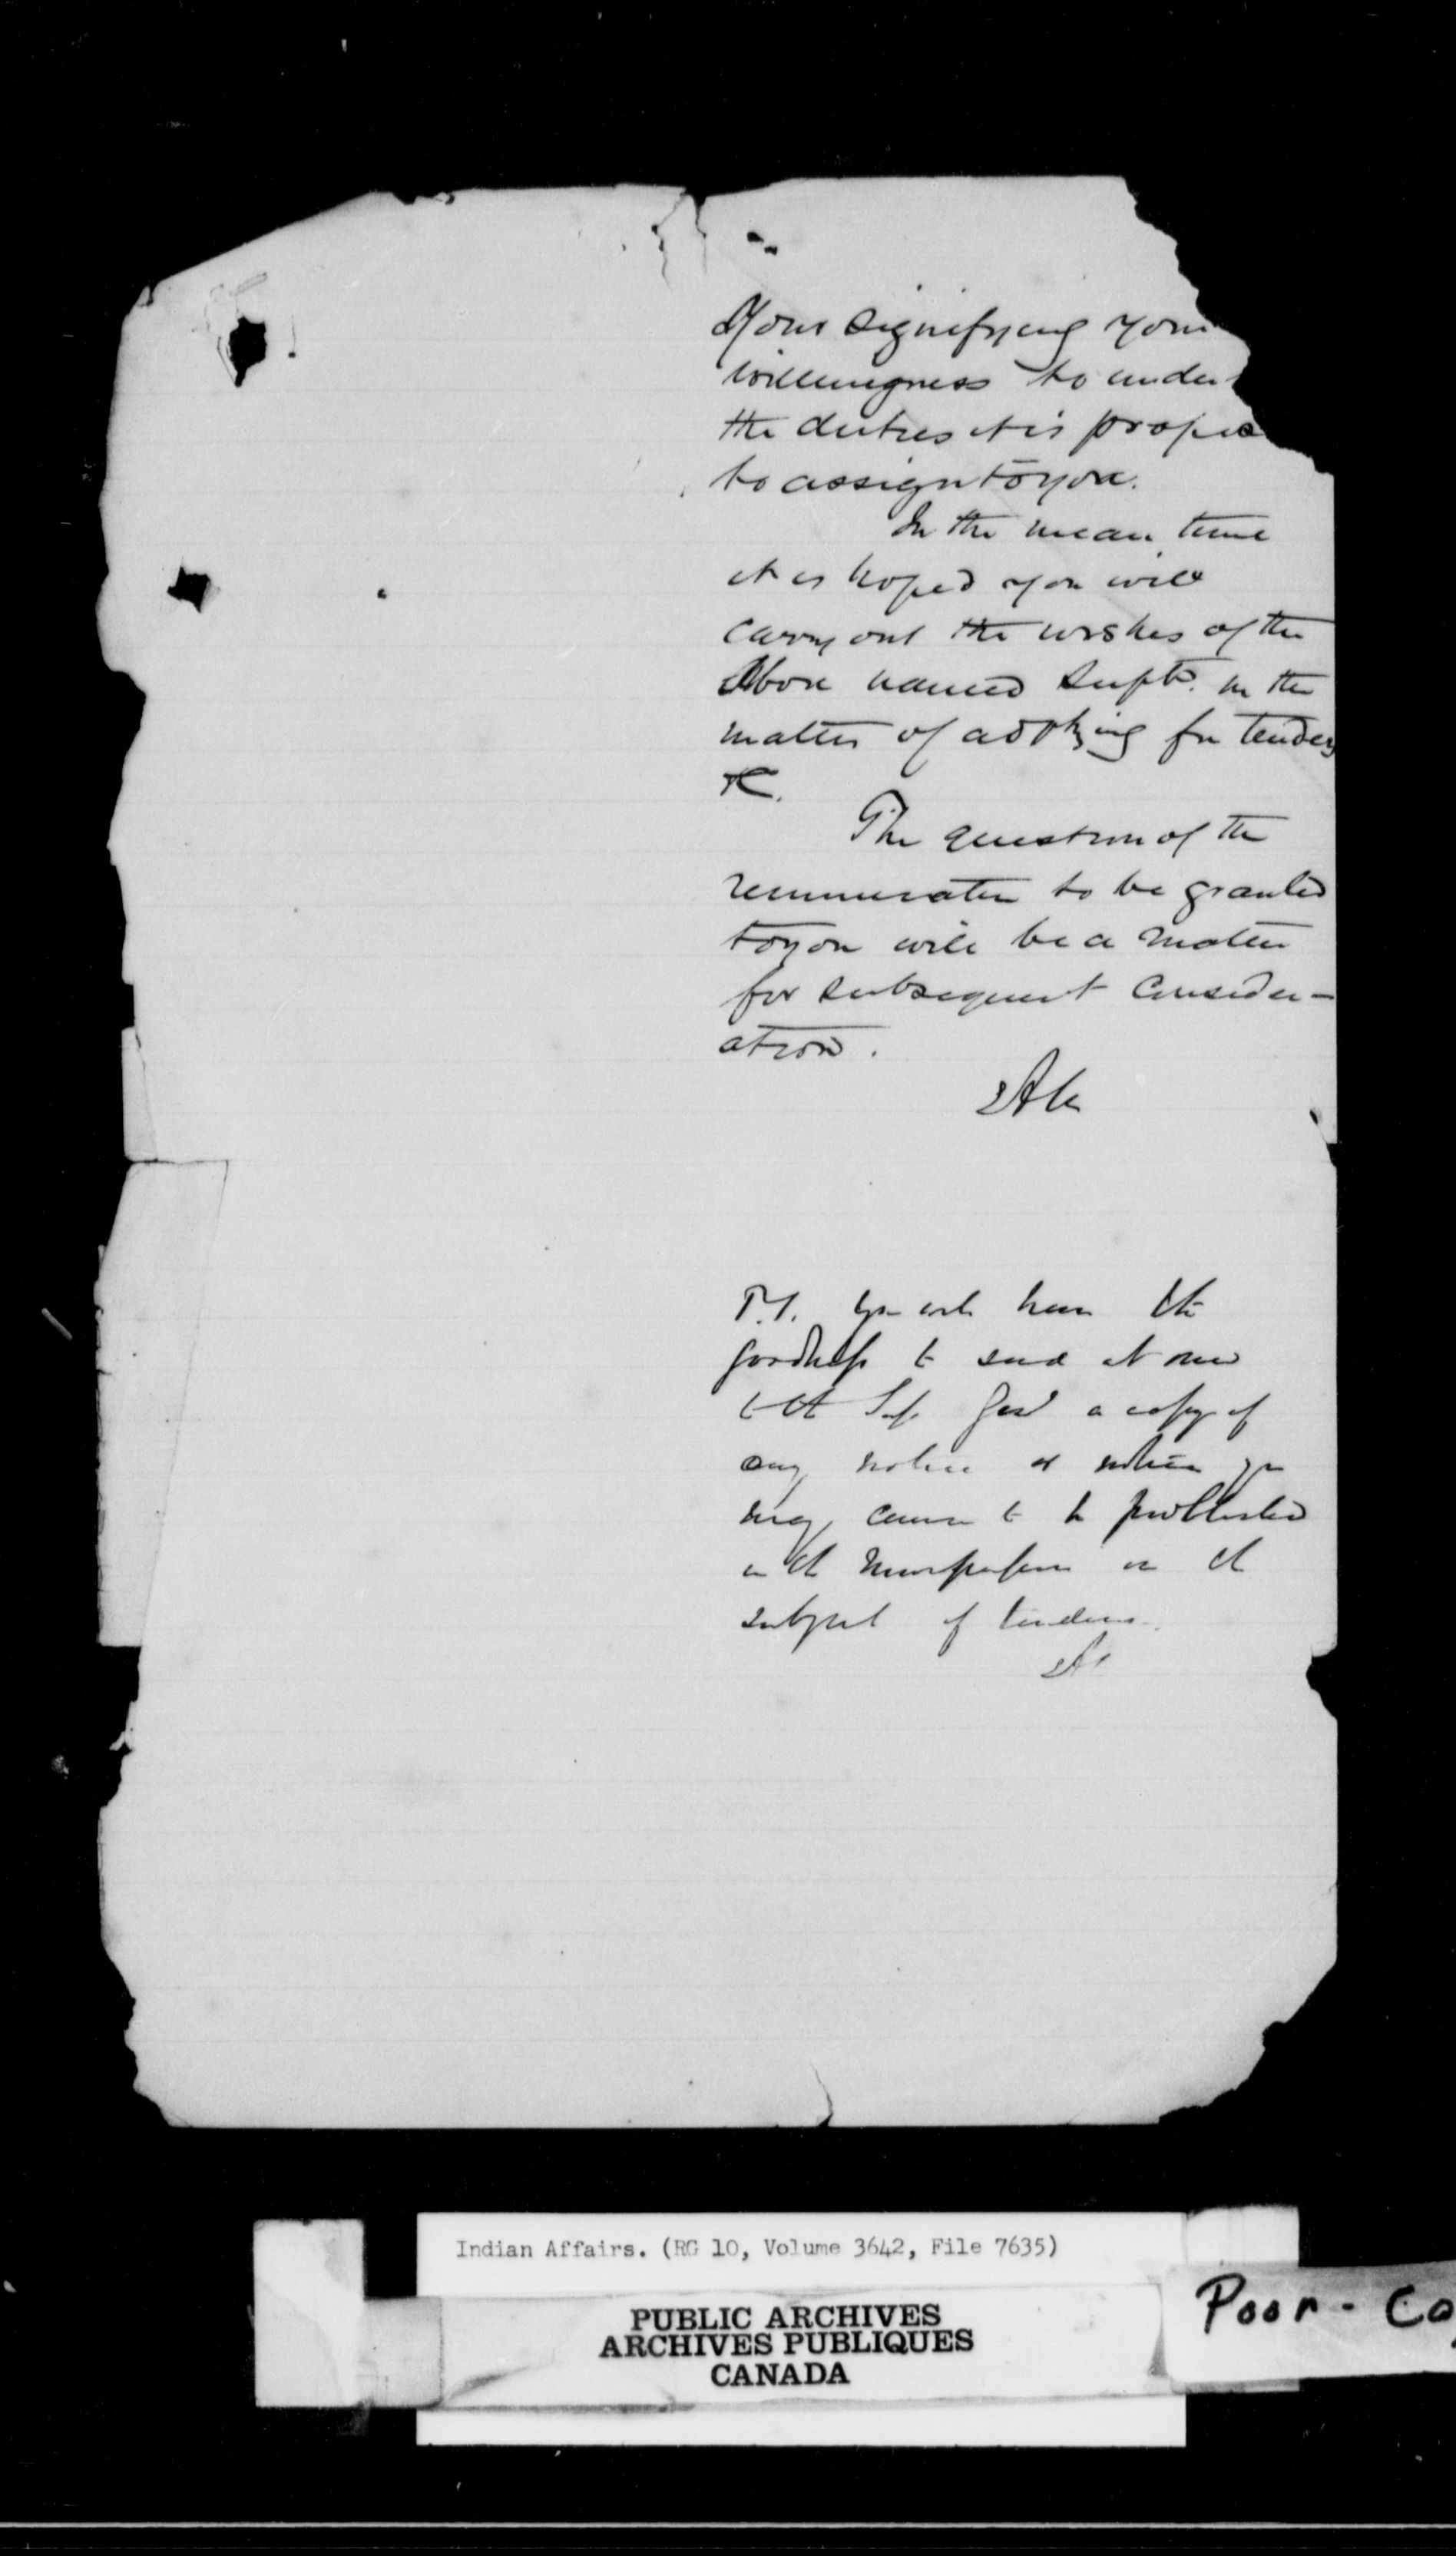 Your signifying your
willingness to under
the duties it is propos
to assign to you.
In the mean time
it is hoped you will
carry out the wishes of the
above named Supt. in the
matter of advtzing for tenders
&c.
The question of the
remuneration to be granted
to you will be a matter
for subsequent consider-
ation.
P.S. You will have the
goodness to send at once
to the Supt Genl a copy of
any notice or notices you
may cause to be published
in the newspapers on the
subject of tenders.
Indian Affairs. (RG 10, Volume 3642, File 7635)
PUBLIC ARCHIVES
ARCHIVES PUBLIQUES
CANADA
Poor - Co